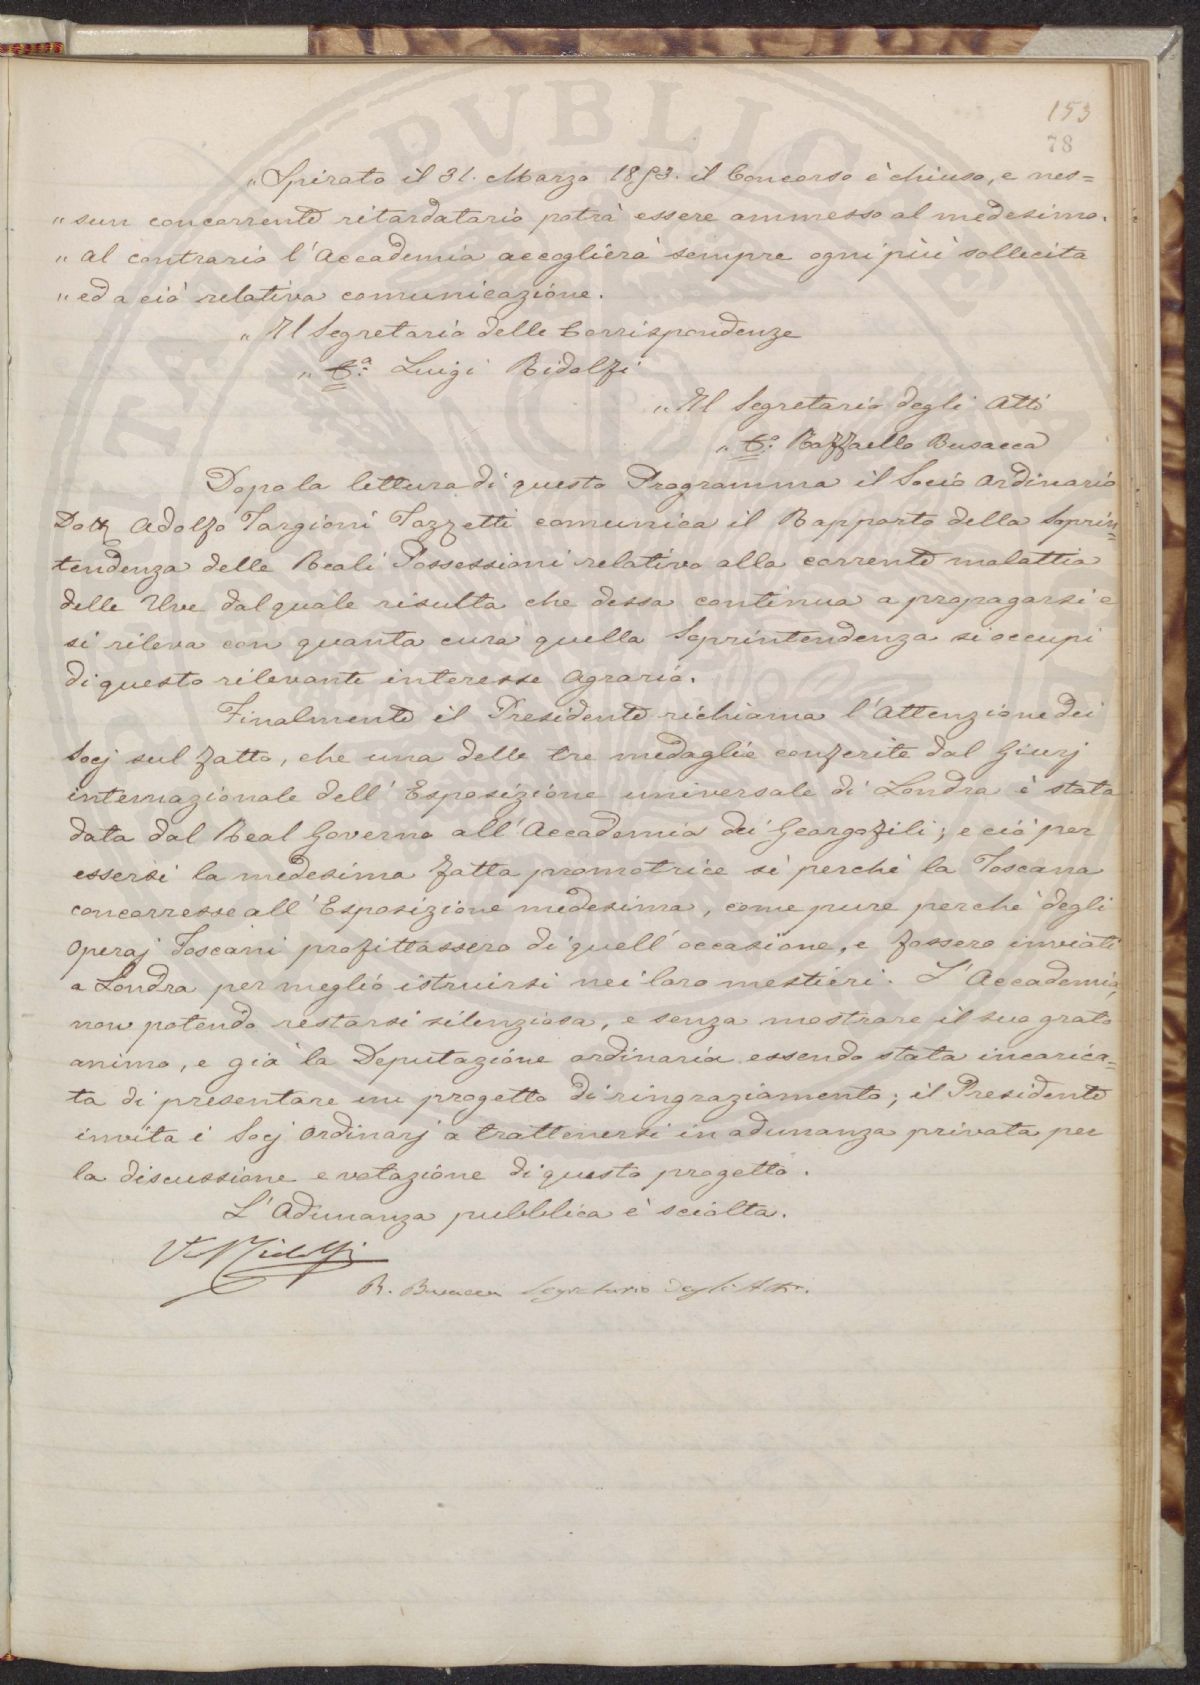 153
78
„ Spirato il 31. Marzo 1853. il Concorso è chiuso, e nes=
„ sun concorrente ritardatario potrà essere ammesso al medesimo.
„ al contrario l'Accademia accoglierà sempre ogni più sollecita
„ ed a ciò relativa comunicazione.
„ Il Segretario delle Corrispondenze
„ Luigi Ridolfi
„ Il Segretario degli Atti
„ Raffaello Busacca
Dopo la lettura di questo Programma il Socio Ordinario
Dott. Adolfo Targioni Tozzetti comunica il Rapporto della Soprin=
tendenza delle Reali Possessioni relativo alla corrente malattia
delle Uve dal quale risulta che dessa continua a propagarsi e
si rileva con quanta cura quella Soprintendenza si occupi
di questo rilevante interesse agrario.
Finalmente il Presidente richiama l'Attenzione dei
Socj sul fatto, che una delle tre medaglie conferite dal Giurj
internazionale dell'Esposizione universale di Londra è stata
data dal Real Governo all'Accademia dei Georgofili; e ciò per
essersi la medesima fatta promotrice sì perchè la Toscana
concorresse all'Esposizione medesima, come pure perchè degli
Operaj Toscani profittassero di quell'occasione, e fossero inviati
a Londra per meglio istruirsi nei loro mestieri. L'Accademia,
non potendo restarsi silenziosa, e senza mostrare il suo grato
animo, e già la Deputazione ordinaria essendo stata incarica=
ta di presentare un progetto di ringraziamento; il Presidente
invita i Socj Ordinarj a trattenersi in adunanza privata per
la discussione e votazione di questo progetto.
L'Adunanza pubblica è sciolta.
Ridolfi
R. Busacca Segretario degli Atti.
PVBLICAE